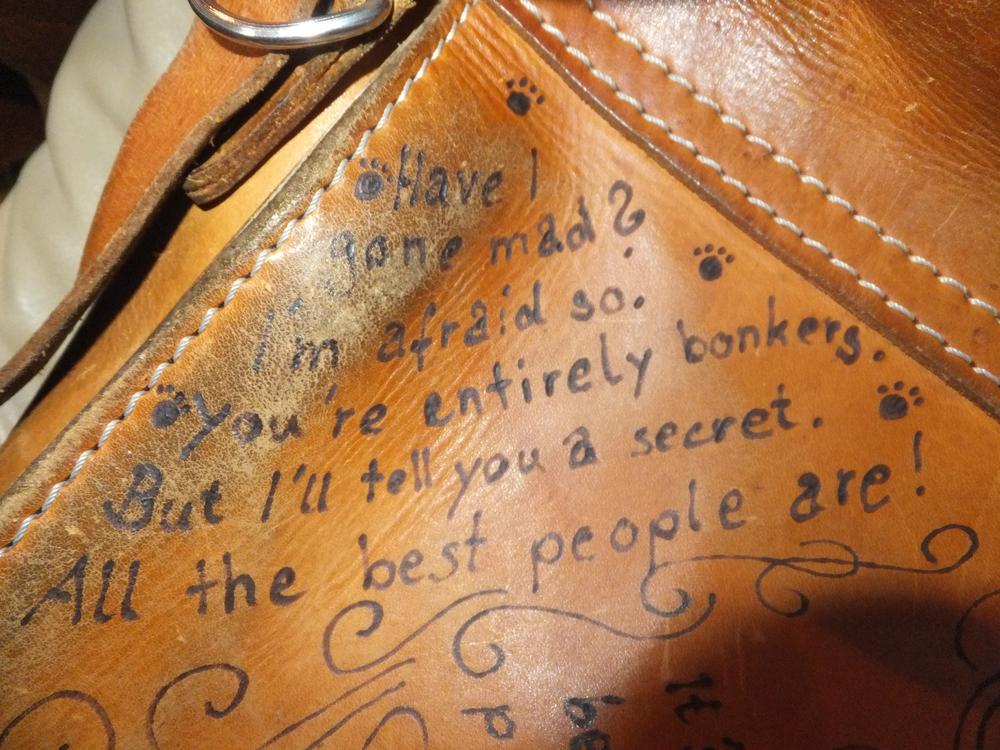 Have I
gone mad?
I'm afraid so.
You're entirely bonkers.
But I'll tell you a secret.
All the best people are!
It